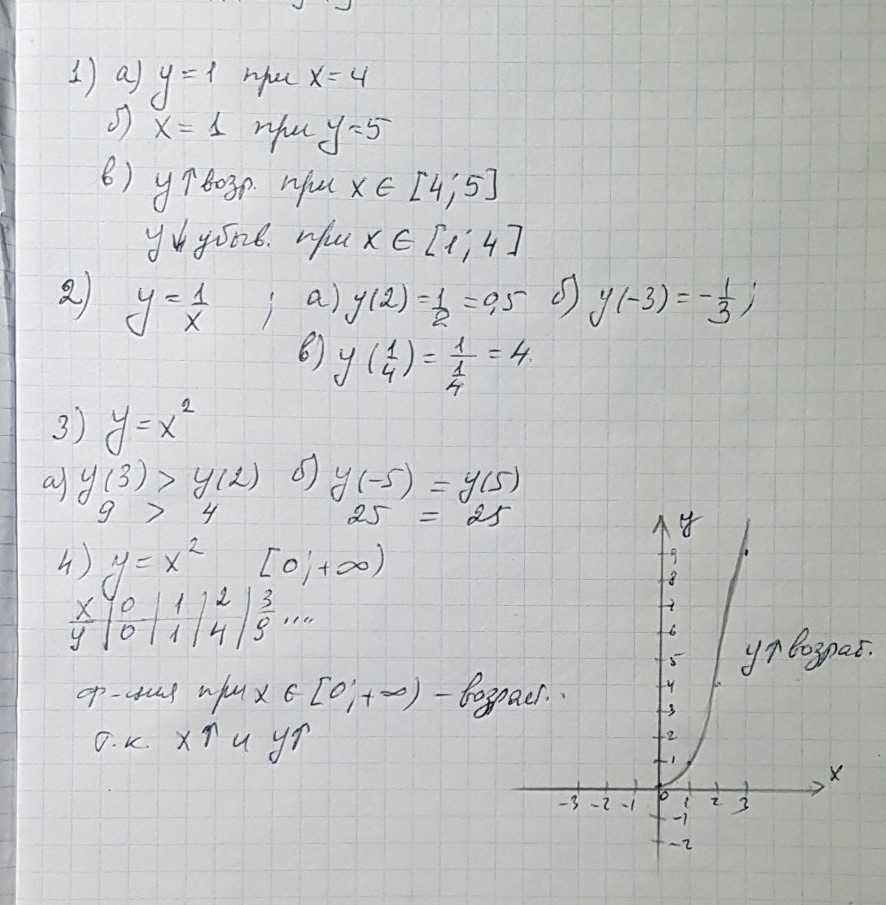 1) а) y = 1 при x = 4
б) x = 1 при y = 5
в) y↑ возр. при x ∈ [4; 5]
y↓ убыв. при x ∈ [1; 4]
2) y = 1/x ; а) y(2) = 1/2 = 0,5 б) y(-3) = -1/3;
в) y(1/4) = 1/(1/4) = 4.
3) y = x²
а) y(3) > y(2) б) y(-5) = y(5)
9 > 4 25 = 25
4) y = x² [0; +∞)
x | 0 | 1 | 2 | 3
y | 0 | 1 | 4 | 9 ....
ф-ция при x ∈ [0; +∞) – возраст.
т.к. x↑ и y↑
y
9
8
7
6
5
4
3
2
1
y↑ возраст.
x
-3 -2 -1 0 1 2 3
-1
-2